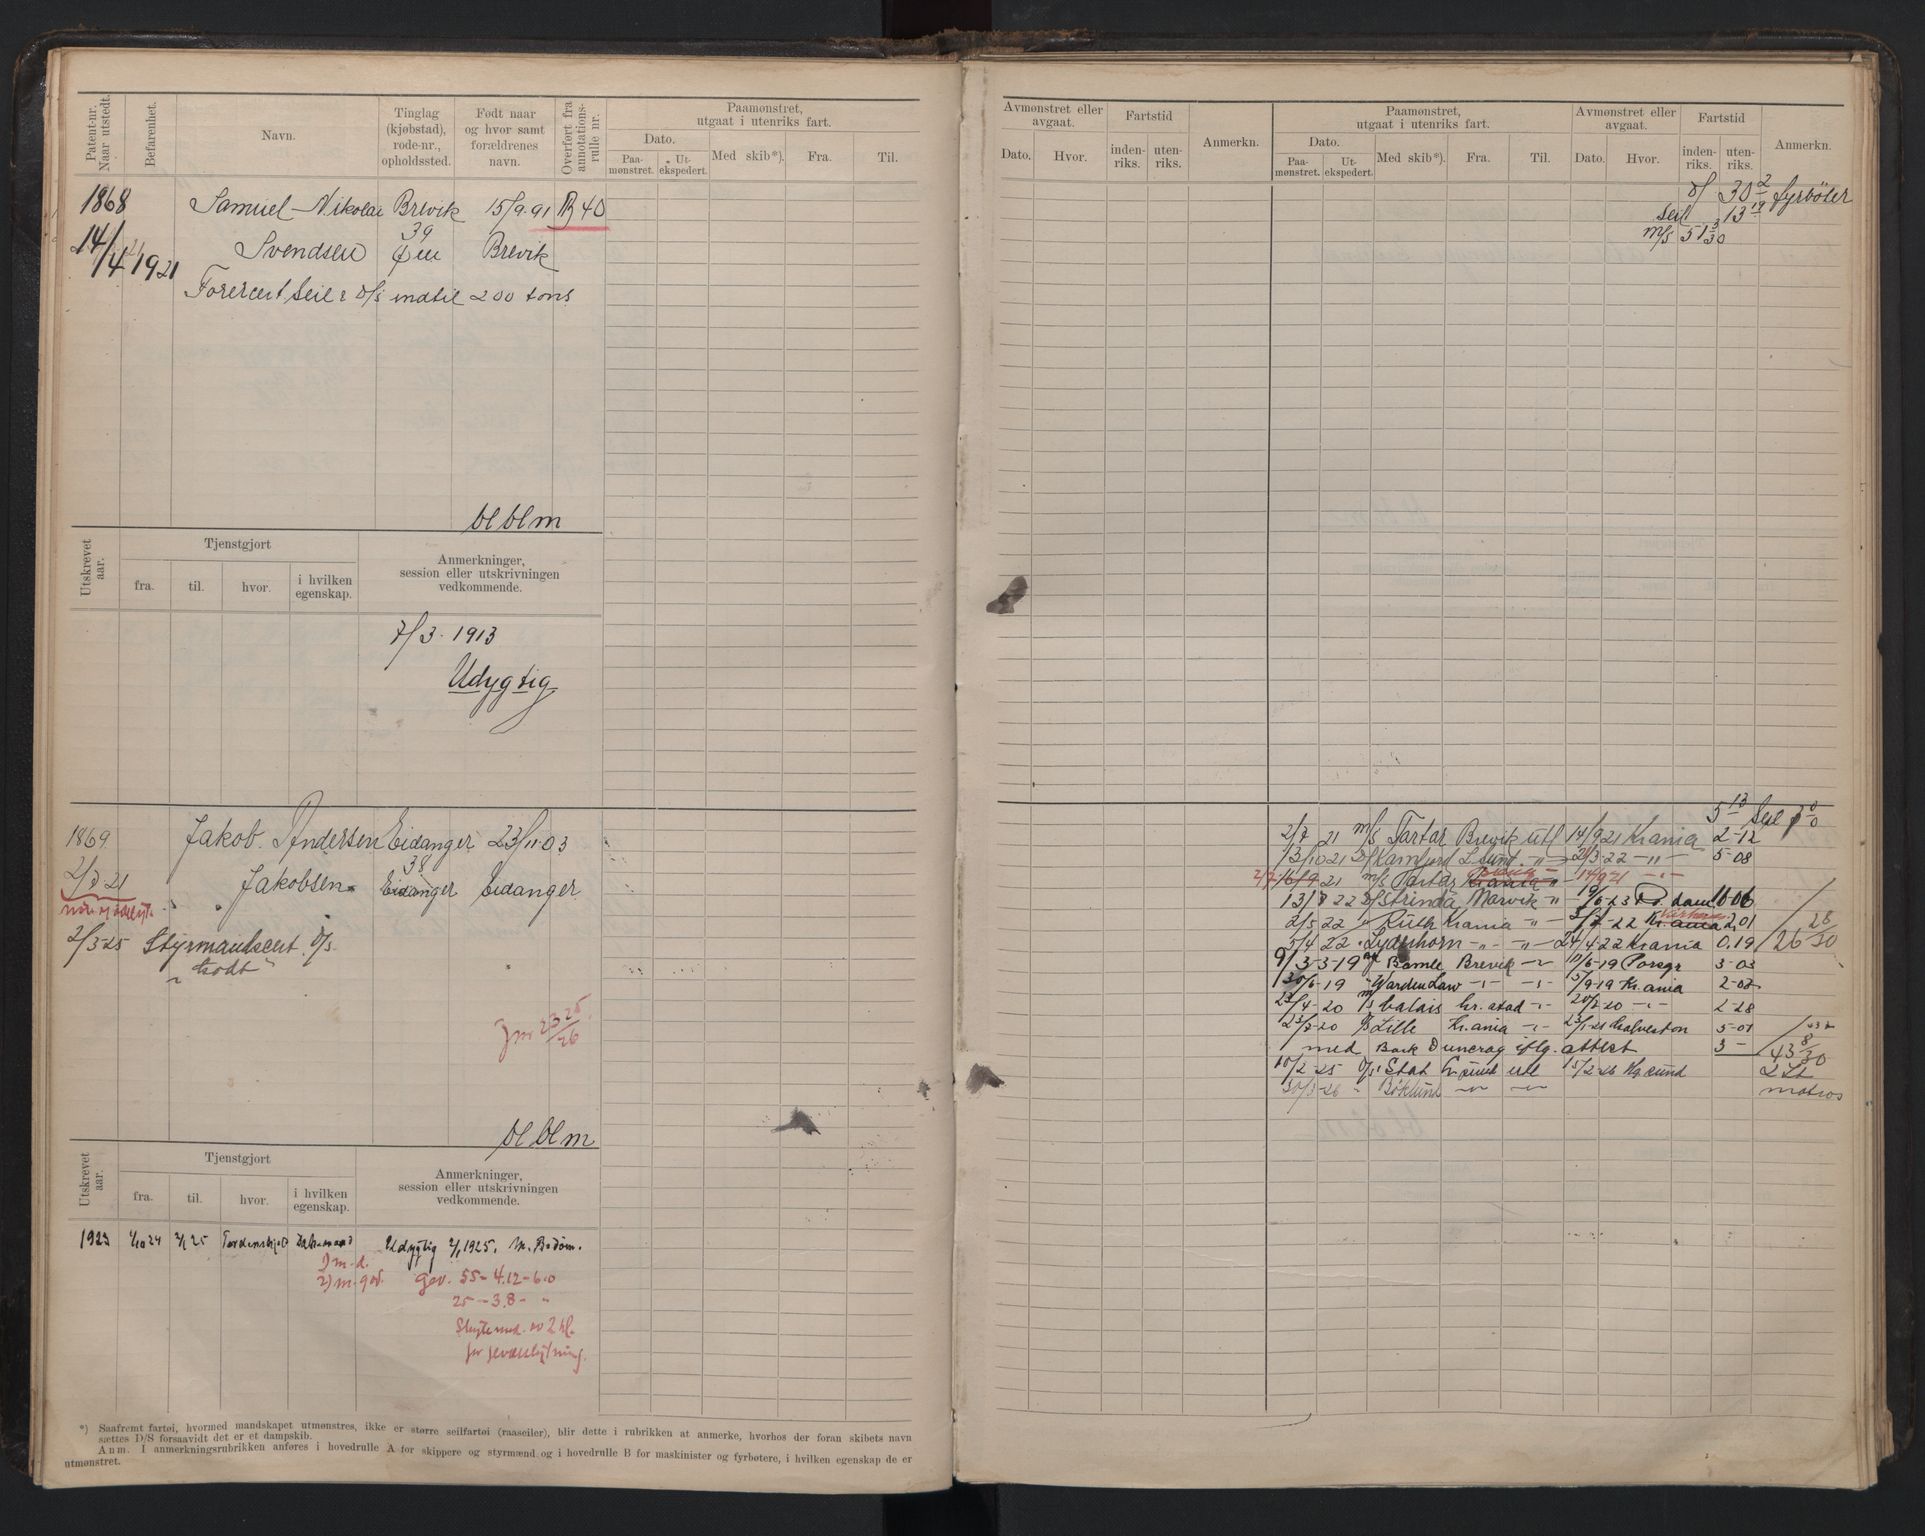 Patent-nr. Naar utstedt.
Befarenhet.
Navn.
Tinglag (kjøbstad), rode-nr., opholdssted.
Født naar og hvor samt forældrenes navn.
Overført fra annotations-rulle nr.
Paamønstret, utgaat i utenriks fart.
Dato.
Paa-mønstret.
Ut-ekspedert.
Med skib*).
Fra.
Til.
1868 Samuel Nikolai Brevik 15/9.91 B 40
39
14/4 1921 Svendsen Øen Brevik
Forercert Seil & D/s indtil 200 tons
bl blm
Utskrevet aar.
Tjenstgjort
fra.
til.
hvor.
i hvilken egenskap.
Anmerkninger, session eller utskrivningen vedkommende.
7/3. 1913
Udygtig
1869 Jakob Andersen Eidanger 23/11.03
38
2/7 21 Jakobsen Eidanger Eidanger
2/3 25 Styrmandscert D/s
"
bl blm
Utskrevet aar.
Tjenstgjort
fra.
til.
hvor.
i hvilken egenskap.
Anmerkninger, session eller utskrivningen vedkommende.
1923 1/10 24 2/1 25 Tordenskjold Udygtig 2/1 1925.
1) m.d.
2) m.god. Gev. 55-4.12-6.0
25-3.8- "
for geværskytning.
*) Saafremt fartøi, hvormed mandskapet utmønstres, ikke er større seilfartøi (raaseiler), blir dette i rubrikken at anmerke, hvorhos der foran skibets navn
sættes D/S forsaavidt det er et dampskib.
Anm. I anmerkningsrubrikken anføres i hovedrulle A for skippere og styrmænd og i hovedrulle B for maskinister og fyrbøtere, i hvilken egenskap de er
utmønstret.
Avmønstret eller avgaat.
Dato.
Hvor.
Fartstid
inden-riks.
uten-riks.
Anmerkn.
Paamønstret, utgaat i utenriks fart.
Dato.
Paa-mønstret.
Ut-ekspedert.
Med skib*).
Fra.
Til.
Avmønstret eller avgaat.
Dato.
Hvor.
Fartstid
inden-riks.
uten-riks.
Anmerkn.
D/ 30 2 fyrböter
Seil 13 19
M/s 51 3/30
5 13 Seil
2/7 21 M/s Tartar Brevik utl 14/9 21 Krania 2-12
13/10 21 D/ Kamfjord L.sund -"- 21/3-22 -"- 5-08
21 M/s Tartar Krania " 14/9 21 -"-
22 D/ Strinda Narvik " 19/6-23 R.dam 11-06
2/5 22 " Ruth Krania " 22 Kr.ania 2.01 28
5/4 22 " Lyderhorn -"- -"- 24/4.22 Krania 0.19 26 30
9/3-19 Bamle Brevik -"- 10/6-19 Porsgr 3-03
30/6-19 " Warden Law -"- -"- 5/9-19 Kr.ania 2-02
23/4-20 M/s Valais Kr.stad -"- 20/7-20 -"- 2-28
23/7-20 D/ Lille Kr.ania -"- 23/1-21 Galveston 5-01
med Bark Duncrag iflg. attest 3- 43 8/30
10/2-25 D/s Stat Kr.sund utl 15/2-26 Kr.sund 2 St
30/3-26 " Böklund -"- -"- matros